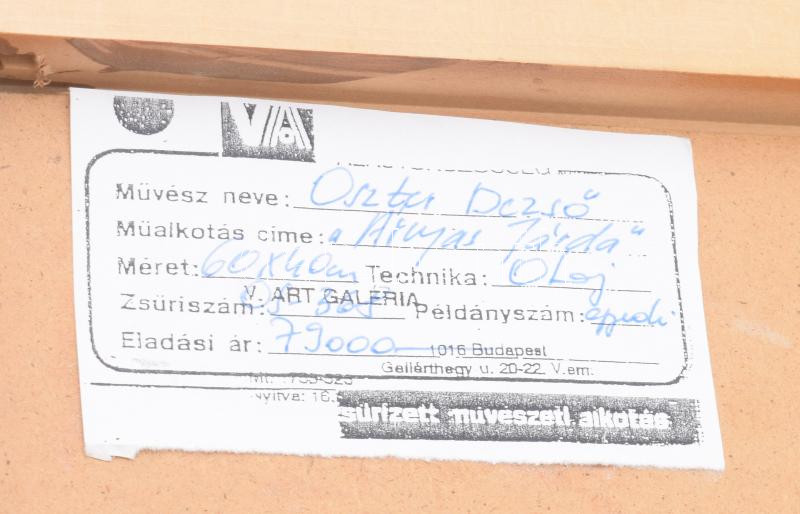 VA
Művész neve: Oszter Dezső
Műalkotás címe: „Árnyas Tárda"
Méret: 60x40cm Technika: Olaj
V. ART GALERIA
Zsűriszám: Példányszám: egyedi
Eladási ár: 79000
1016 Budapest
Gellérthegy u. 20-22. V.em.
Nyitva: 16.
sűrizett művészeti alkotás